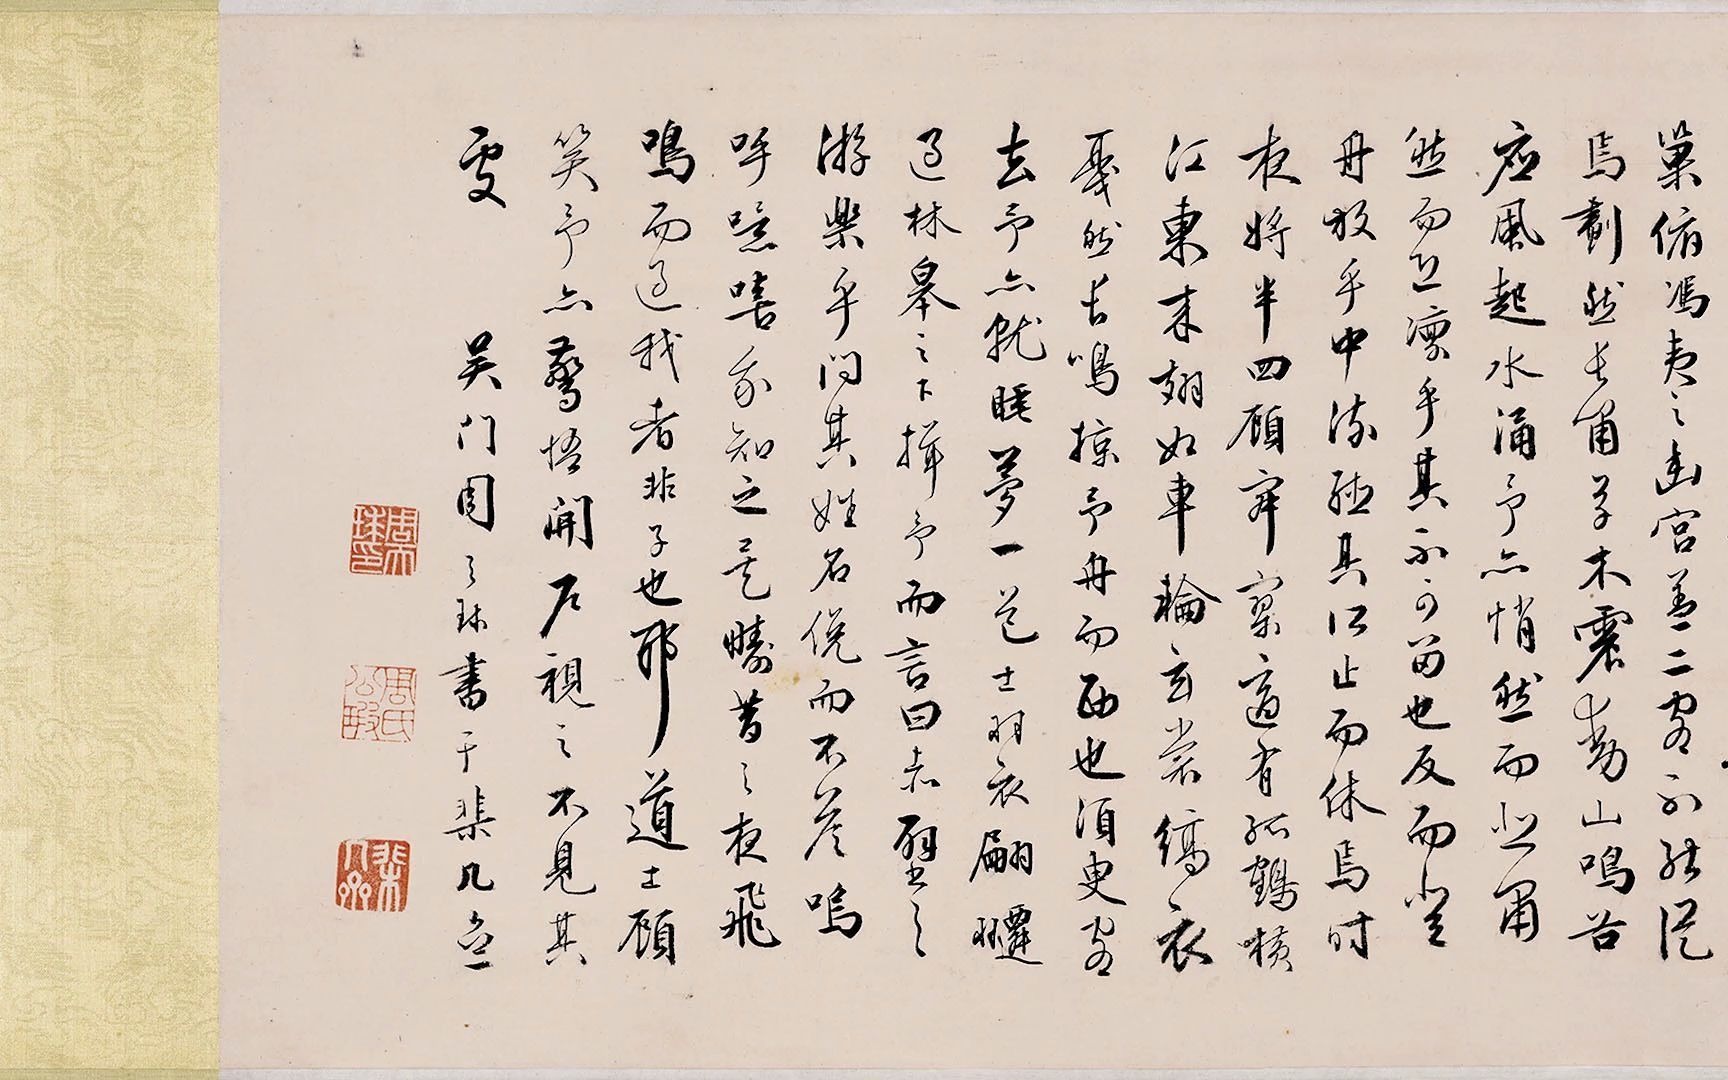 巢俯馮夷之幽宮蓋二客不能從
焉劃然長嘯草木震動山鳴谷
應風起水涌予亦悄然而悲肅
然而恐凜乎其不可留也反而登
舟放乎中流聽其所止而休焉時
夜將半四顧寂寥適有孤鶴橫
江東來翅如車輪玄裳縞衣
戛然長鳴掠予舟而西也須臾客
去予亦就睡夢一道士羽衣翩躚
過林皋之下揖予而言曰赤壁之
游樂乎問其姓名俛而不答嗚
呼噫嘻我知之矣疇昔之夜飛
鳴而過我者非子也耶道士顧
笑予亦驚悟開戶視之不見其
處 吳門周天球書于棐几齋
周天球印
周氏公瑕